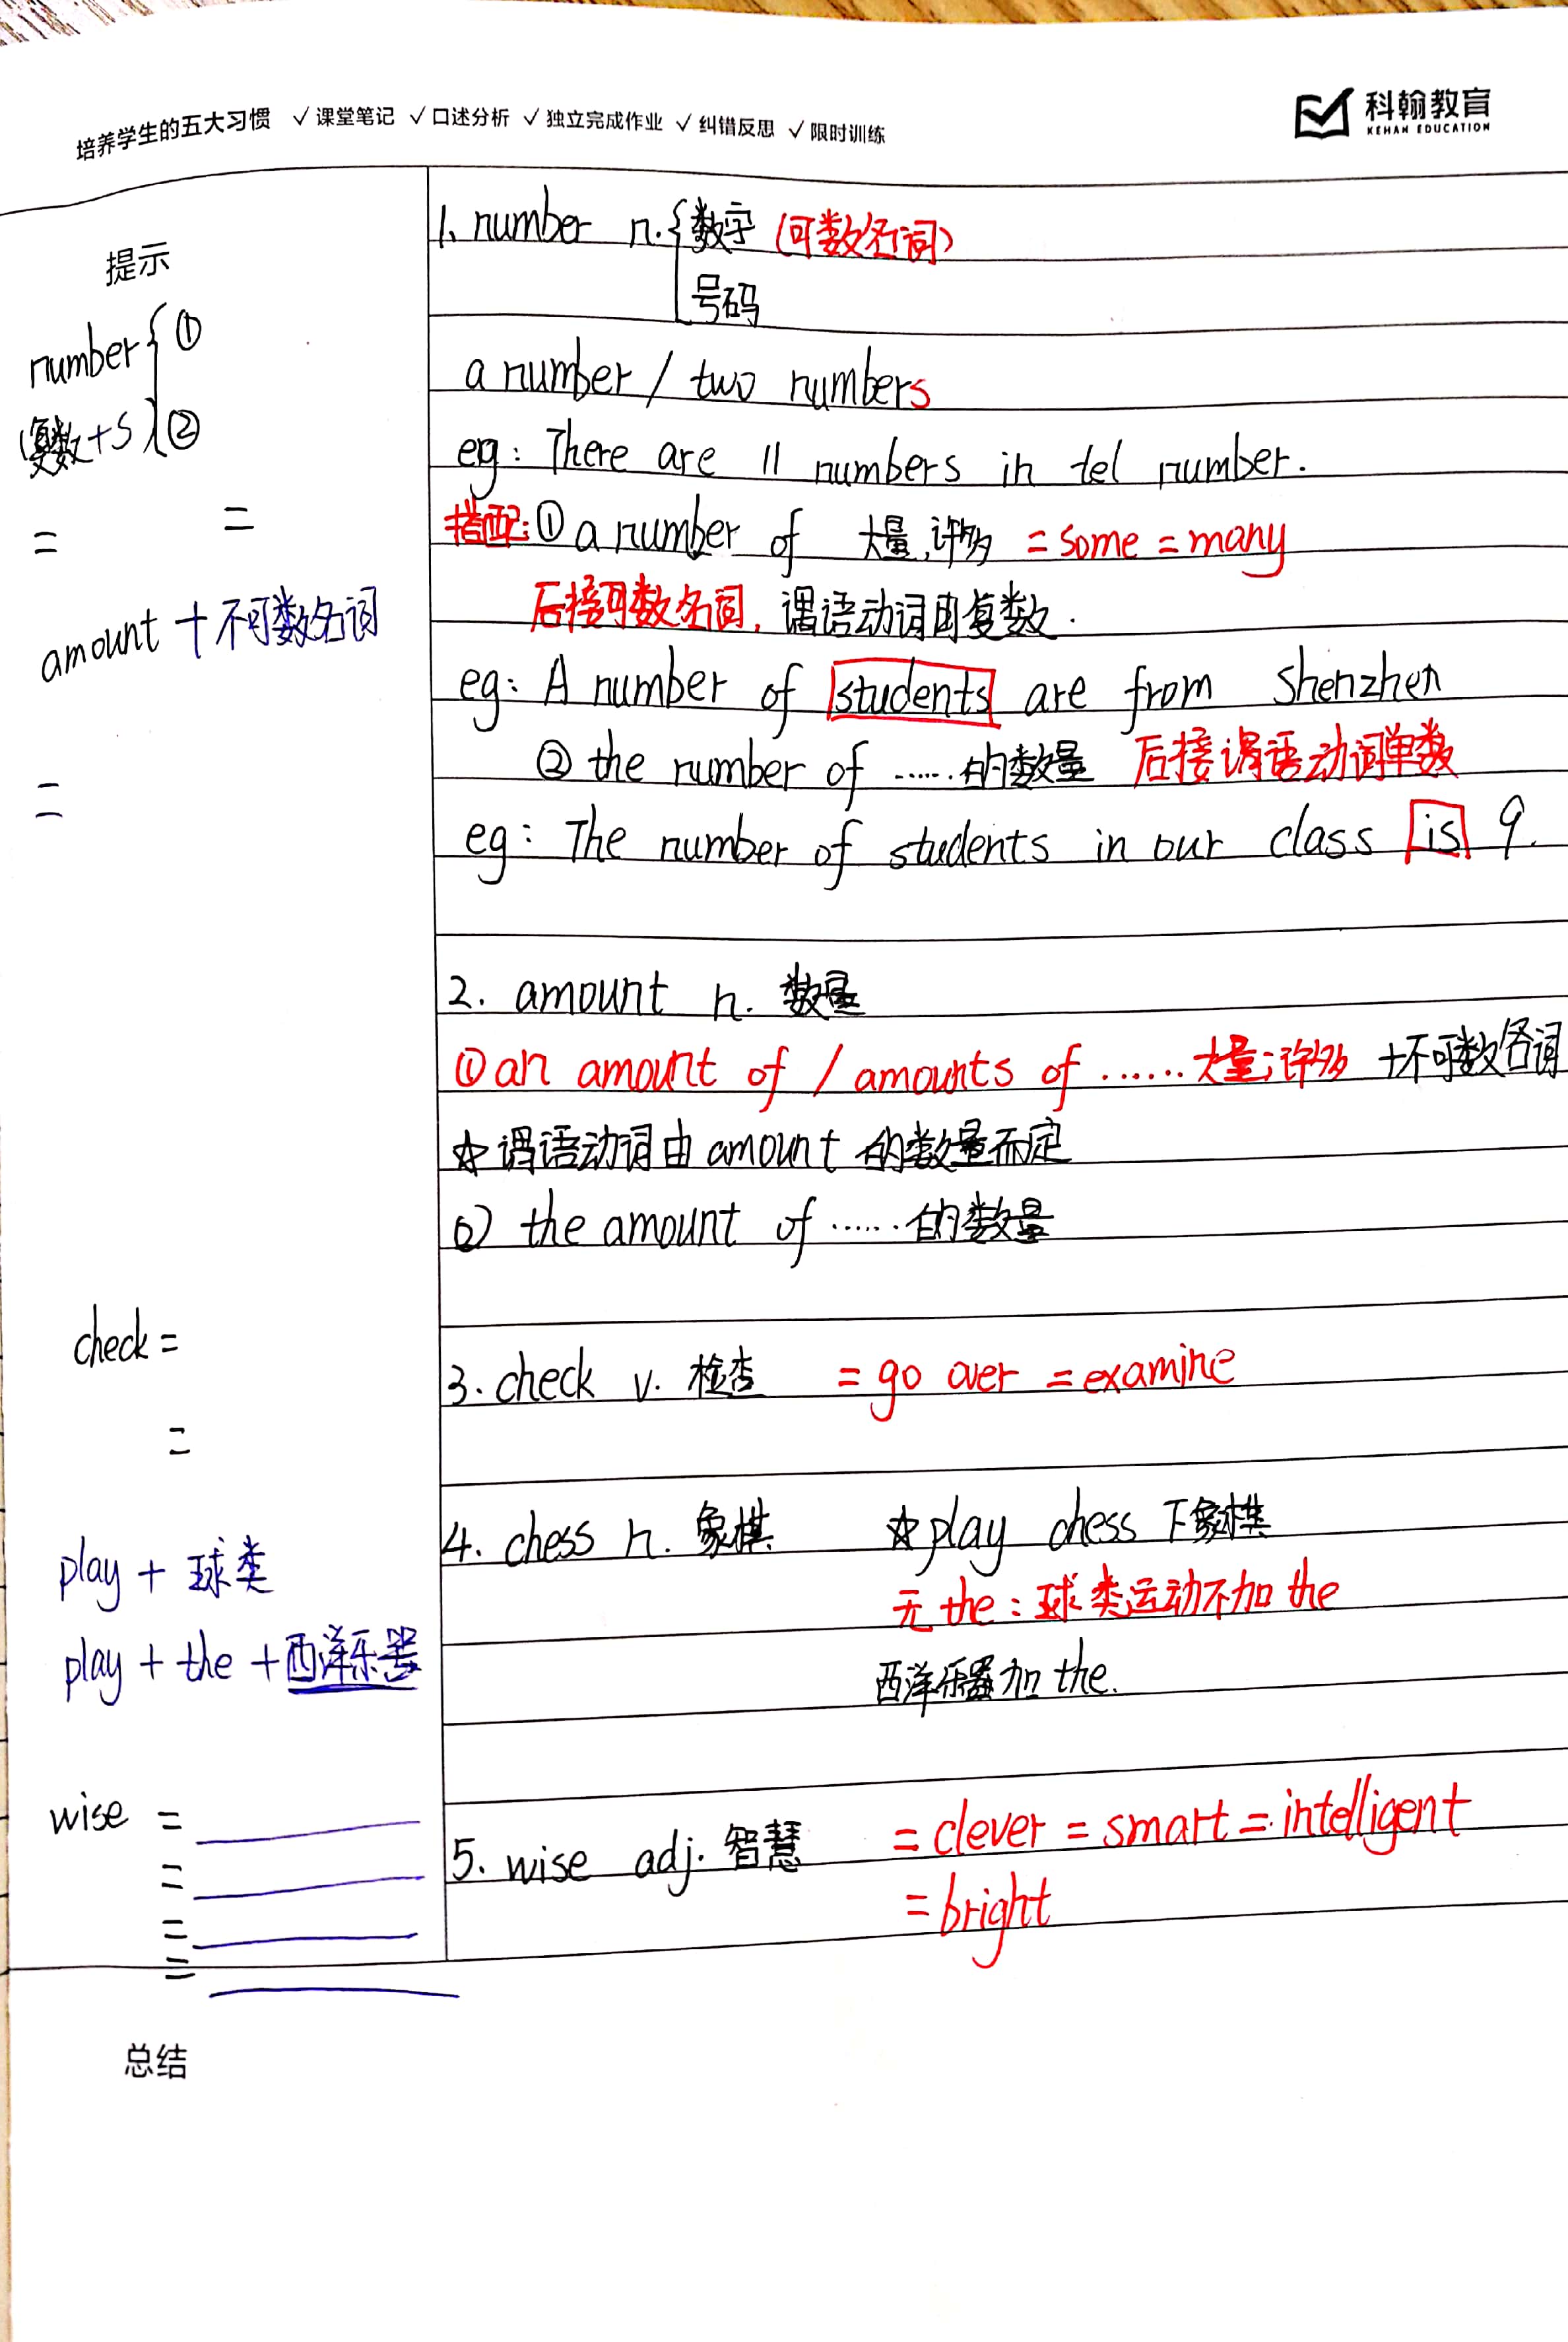 培养学生的五大习惯 ✓课堂笔记 ✓口述分析 ✓独立完成作业 ✓纠错反思 ✓限时训练
科翰教育
KEHAN EDUCATION
提示
number { ①
(复数+s) ②
=
=
amount + 不可数名词
=
check =
=
play + 球类
play + the + 西洋乐器
wise =
=
=
=
1. number n. { 数字 (可数名词)
号码
a number / two numbers
eg: There are 11 numbers in tel number.
搭配: ① a number of 大量,许多 = some = many
后接可数名词, 谓语动词用复数.
eg: A number of students are from Shenzhen
② the number of ...... 的数量 后接谓语动词单数
eg: The number of students in our class is 9.
2. amount n. 数量
① an amount of / amounts of ...... 大量;许多 +不可数名词
☆ 谓语动词由 amount 的数量而定
② the amount of ...... 的数量
3. check v. 检查 = go over = examine
4. chess n. 象棋 ☆play chess 下象棋
无 the : 球类运动不加 the
西洋乐器加 the.
5. wise adj. 智慧 = clever = smart = intelligent
= bright
总结